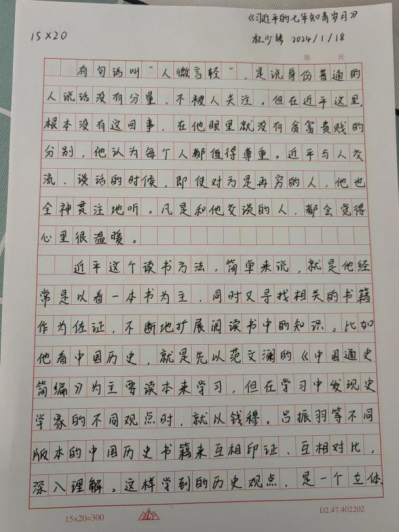 《习近平的七年知青岁月》
15×20
2024/1/18
有句话叫“人微言轻”，是说身份普通的
人说话没有分量，不被人关注。但在近平这里，
根本没有这回事，在他眼里就没有贫富贵贱的
分别，他认为每个人都值得尊重。近平与人交
流、谈话的时候，即使对方是再穷的人，他也
全神贯注地听。凡是和他交谈的人，都会觉得
心里很温暖。
近平这个读书方法，简单来说，就是他经
常是以看一本书为主，同时又寻找相关的书籍
作为佐证，不断地扩展阅读书中的知识。比如
他看中国历史，就是先以范文澜的《中国通史
简编》为主要读本来学习，但在学习中发现史
学家的不同观点时，就以钱穆、吕振羽等不同
版本的中国历史书籍来互相印证，互相对比，
深入理解。这样学到的历史观点，是一个立体
15×20=300
D2.47.402202